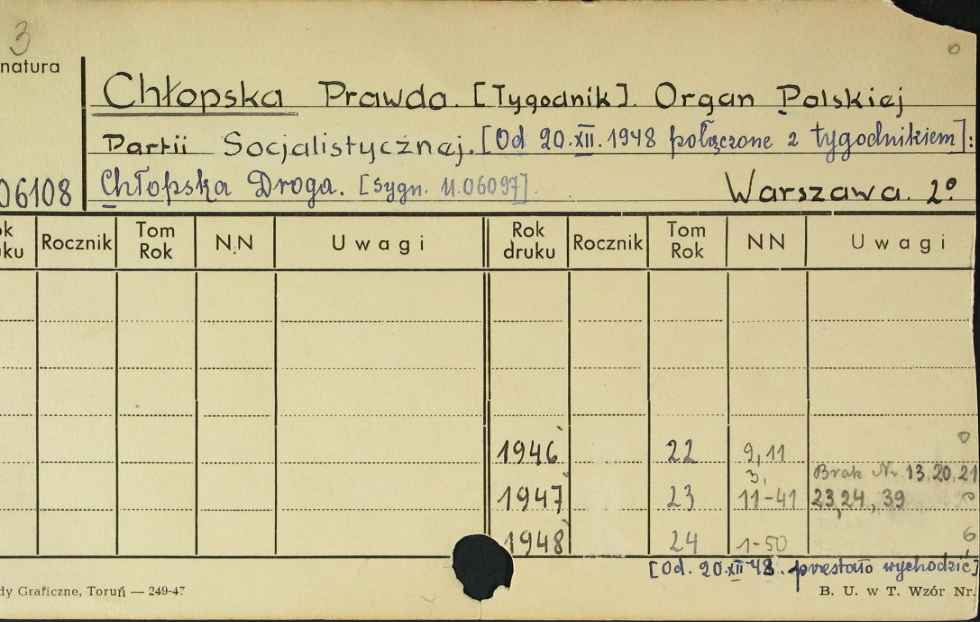 3
natura
Chłopska Prawda. [Tygodnik]. Organ Polskiej
Partii Socjalistycznej. [Od 20.XII.1948 połączone z tygodnikiem]:
06108 Chłopska Droga. [Sygn. U.06097]. Warszawa. 2°
ok Rocznik Tom N.N Uwagi Rok Rocznik Tom NN Uwagi
uku Rok druku Rok
1946 22 9, 11
3, Brak Nr 13, 20, 21
1947 23 11-41 23, 24, 39
1948 24 1-50 6
[Od. 20.XII 48. przestało wychodzić]
dy Graficzne, Toruń — 249-47 B. U. w T. Wzór Nr.